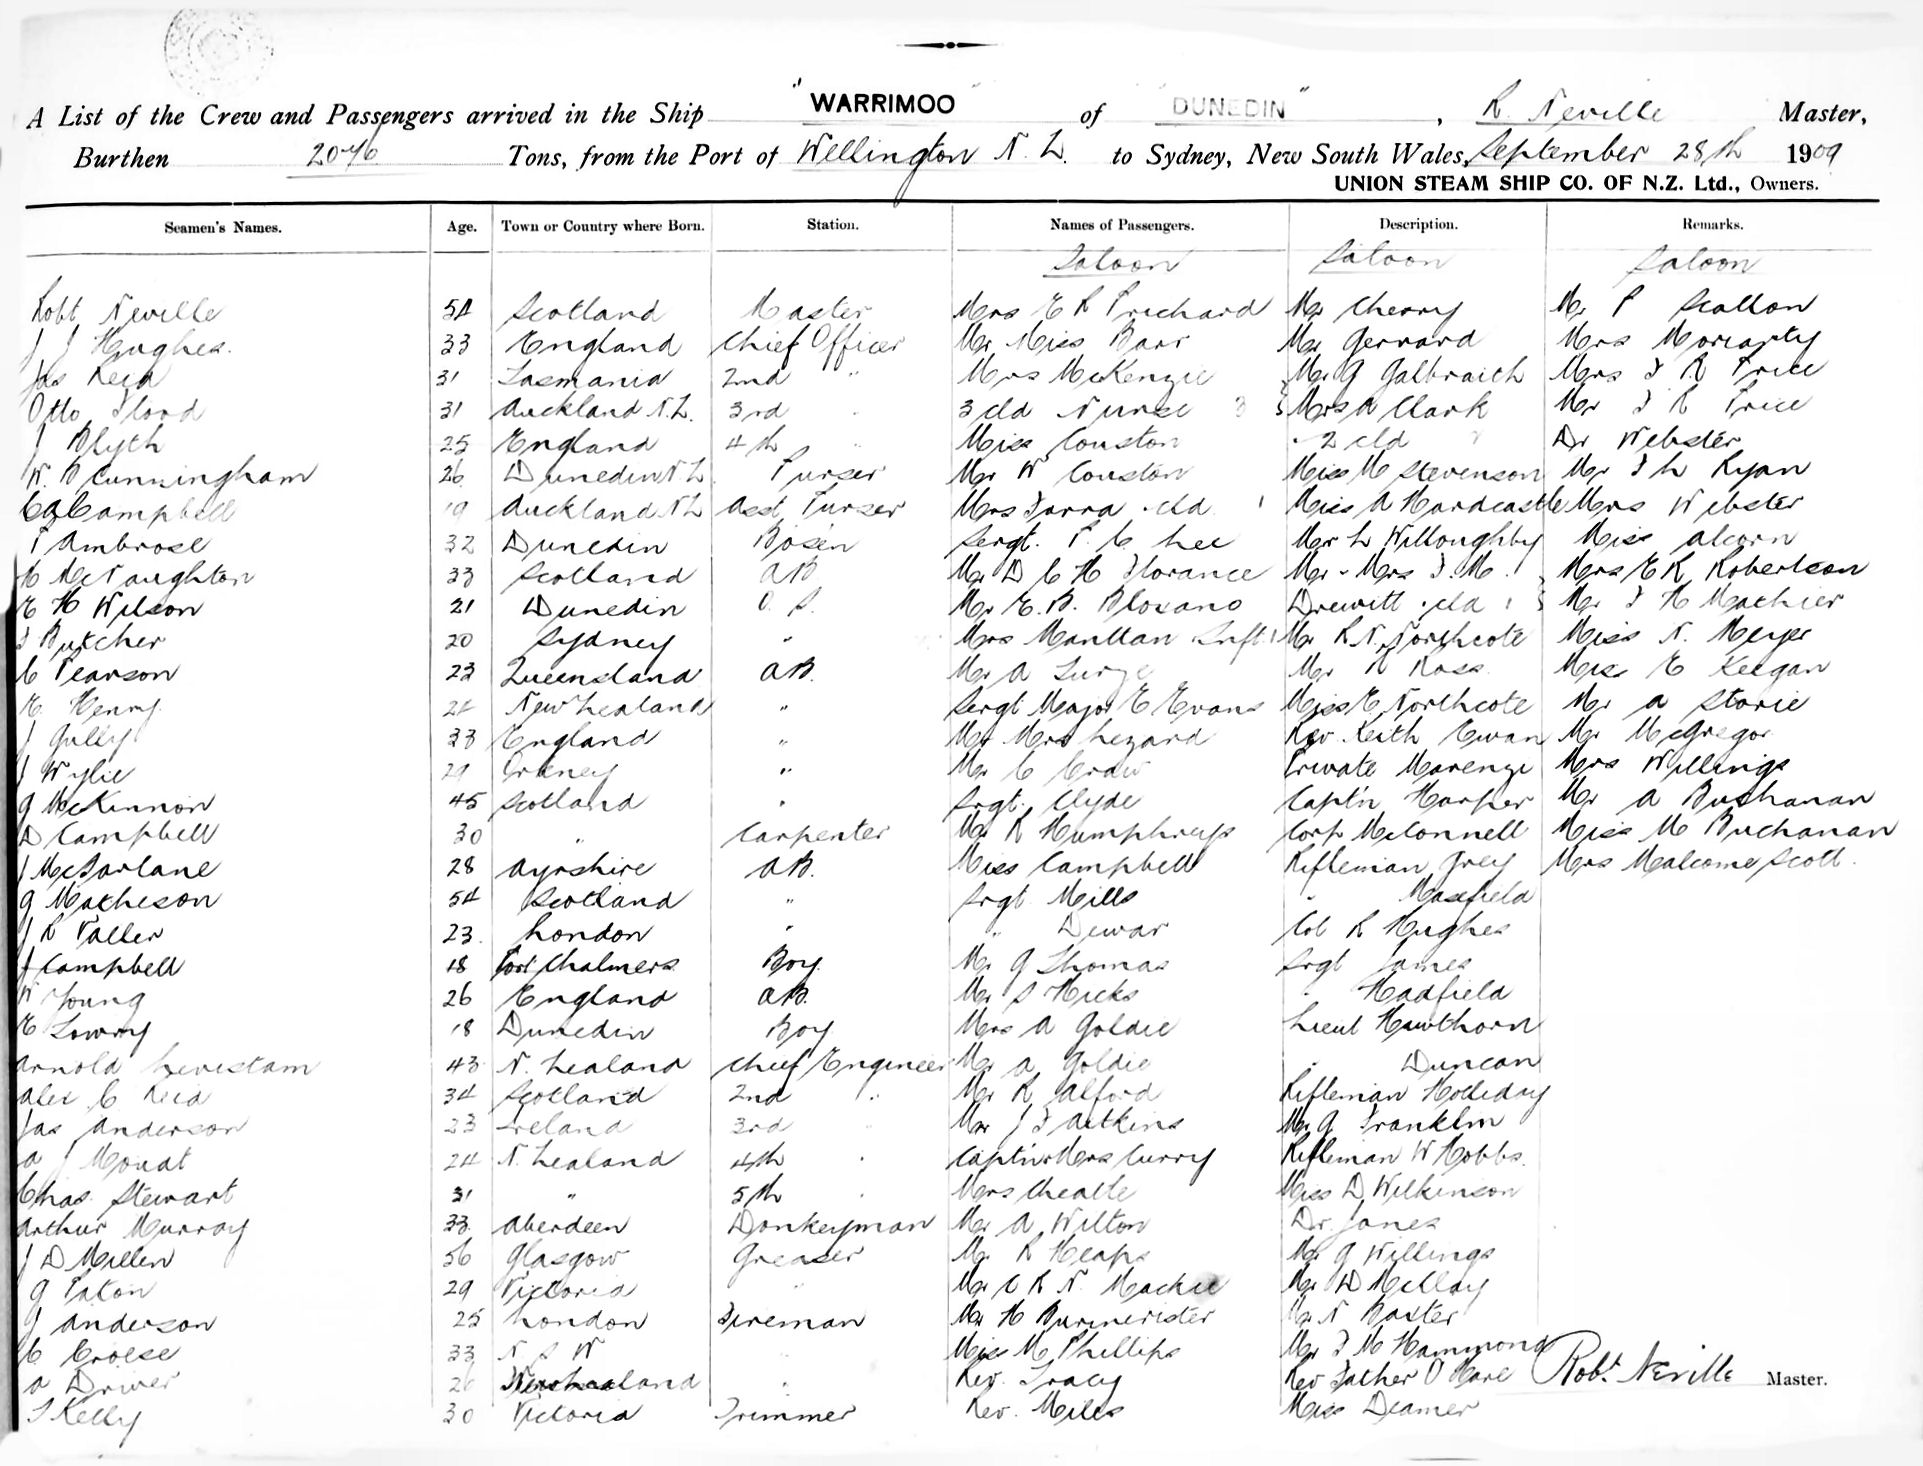 A List of the Crew and Passengers arrived in the Ship "WARRIMOO" of "DUNEDIN", R Neville Master,
Burthen 2076 Tons, from the Port of Wellington N.Z. to Sydney, New South Wales, September 28th 1909
UNION STEAM SHIP CO. OF N.Z. Ltd., Owners.
Seamen's Names. Age. Town or Country where Born. Station. Names of Passengers. Description. Remarks.
Saloon Saloon Saloon
Robt Neville 54 Scotland Master Mrs E R Prichard Mr Cherry Mr P Scallon
J J Hughes 33 England Chief Officer Mr Miss Barr Mr Gerrard Mrs Moriarty
Jas Reid 31 Tasmania 2nd " Mrs McKenzie Mr G Galbraith Mrs F R Price
Otto Flood 31 Auckland N.Z. 3rd 3 cld Nurse 3 Mrs A Clark Mr F R Price
J Blyth 25 England 4th Miss Couston 2 cld Dr Webster
W. B Cunningham 26 Dunedin N Z Purser Mr W Couston Miss M Stevenson Mr F L Ryan
Campbell 19 Auckland N Z Asst Purser Mrs Farra cld 1 Miss A Hardcastle Mrs Webster
T Ambrose 32 Dunedin Bosen Sergt. P. C Lee Mr L Willoughby Miss Alcorn
C McNaughton 33 Scotland AB Mr D C H Florance Mr - Mrs F. M. Mrs E R Robertson
E H Wilson 21 Dunedin O. S. Mr E. B. Drewitt cld 1 Mr F H
J Butcher 20 Sydney " Mrs Inft 1 Mr R N. Northcote Miss N. Meyer
C Pearson 23 Queensland AB. Mr A Mr R Ross Miss E Keegan
E Henry New Zealand " Sergt Major E Evans Miss E Northcote Mr A Storie
J Gully 33 England " Mr Mrs Lezard Rev. Keith Ewan Mr McGregor
J Wylie 29 Orkney " Mr C Craw Private Mrs Willings
G McKinnon 45 Scotland " Srgt. Clyde Capt'n Harper Mr A Buchanan
D Campbell 30 " Carpenter Mr R Humphreys Corp McConnell Miss M Buchanan
J McFarlane 28 Ayrshire AB. Miss Campbell Rifleman Grey Mrs Malcome Scott
G Matheson 54 Scotland " Srgt Mills " Maxfield
J R 23 London " " Dewar Col R Hughes
J Campbell 18 Port Chalmers Boy Mr G Thomas Srgt James
W Young 26 England AB. Mr S Hicks " Hadfield
E Lowry 18 Dunedin Boy Mrs A Goldie Lieut Hawthorn
Arnold 43 N. Zealand Chief Engineer Mr A Goldie " Duncan
Alex C Reid 34 Scotland 2nd " Mr R Alford Rifleman Holliday
Jas Anderson 23 Ireland 3rd Mr J F Aitkins Mr G Franklin
A J Mouat 24 N. Zealand 4th Capt'n Mrs Curry Rifleman W Hobbs.
Chas. Stewart 31 " 5th Mrs Miss D Wilkinson
Arthur Murray 33 Aberdeen Donkeyman Mr A Wilton Dr. Janes
J D Millen 56 Glasgow Greaser Mr R Heaps Mr G Willings
G Paton 29 Victoria " Mr C R N. Mackie Mr D McLlay
J Anderson 25 London Fireman Mr H Burmeister Mr N Baxter
C Croese 33 N S W " Miss M Phillips Mr F M Hammond
A Driver 26 New Zealand " Rev. Tracy Rev Father O'Hare Robt. Neville Master.
T Kelly 30 Victoria Trimmer Rev. Miles Miss Deamer